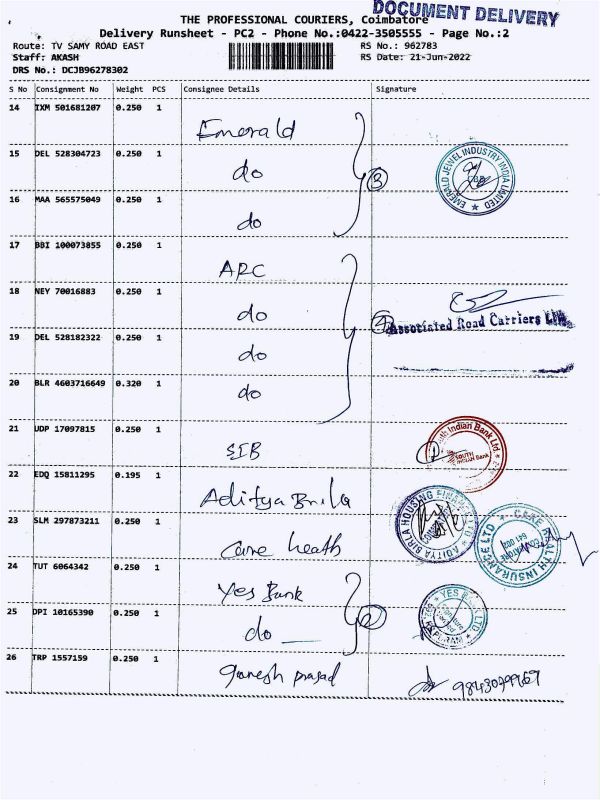 DOCUMENT DELIVERY
THE PROFESSIONAL COURIERS, Coimbatore
Delivery Runsheet - PC2 - Phone No.:0422-3505555 - Page No.:2
Route: TV SAMY ROAD EAST RS No.: 962783
Staff: AKASH RS Date: 21-Jun-2022
DRS No.: DCJB96278302
S No Consignment No Weight PCS Consignee Details Signature
14 IXM 501681207 0.250 1 Emerald
15 DEL 528304723 0.250 1 do
3
EMERALD JEWEL INDUSTRY INDIA LIMITED
16 MAA 565575049 0.250 1 do
17 BBI 100073855 0.250 1 ARC
18 NEY 70016883 0.250 1 do
4 Associated Road Carriers Ltd
19 DEL 528182322 0.250 1 do
20 BLR 4603716649 0.320 1 do
21 UDP 17097815 0.250 1 SIB
1
South Indian Bank Ltd.
SOUTH INDIAN Bank
22 EDQ 15811295 0.195 1 Aditya Brila
ADITYA BIRLA HOUSING FINANCE LTD
23 SLM 297873211 0.250 1 Care heath
CARE HEALTH INSURANCE LTD
24 TUT 6064342 0.250 1 Yes Bank
25 DPI 10165390 0.250 1 do
2
YES BANK LTD
26 TRP 1557159 0.250 1 ganesh prasad